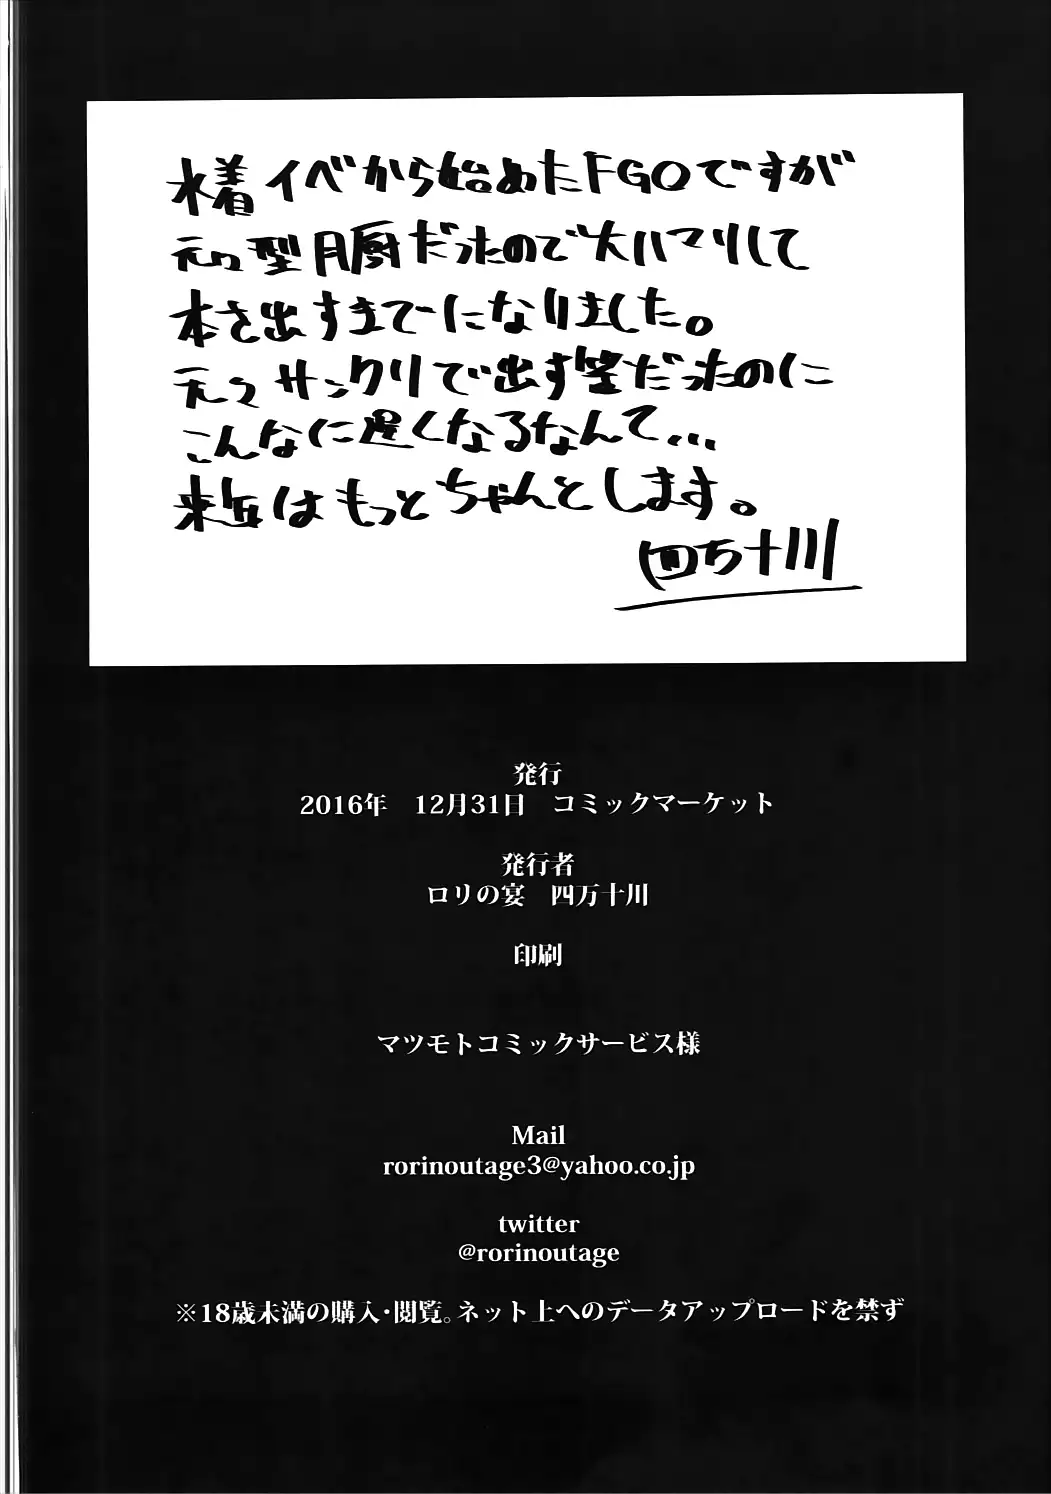 水着イベから始めたFGOですが
元々型月厨だったので大ハマりして
本を出すまでになりました。
元々サンクリで出す筈だったのに
こんなに遅くなるなんて...
来年はもっとちゃんとします。
四万十川
発行
2016年　12月31日　コミックマーケット
発行者
ロリの宴　四万十川
印刷
マツモトコミックサービス様
Mail
rorinoutage3@yahoo.co.jp
twitter
@rorinoutage
※18歳未満の購入・閲覧。ネット上へのデータアップロードを禁ず